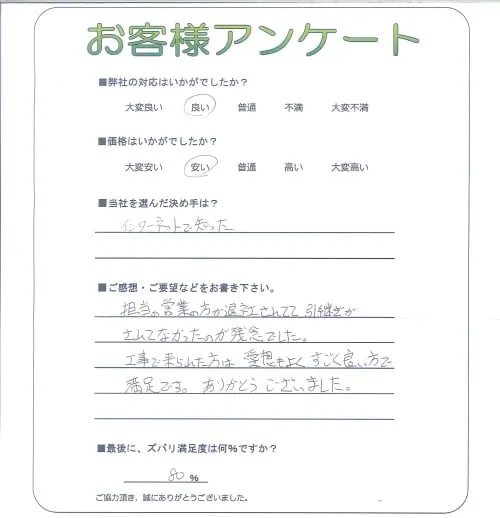 お客様アンケート
■弊社の対応はいかがでしたか？
大変良い 良い 普通 不満 大変不満
■価格はいかがでしたか？
大変安い 安い 普通 高い 大変高い
■当社を選んだ決め手は？
インターネットで知った
■ご感想・ご要望などをお書き下さい。
担当の営業の方が退社されてて 引継ぎが
されてなかったのが残念でした。
工事で来られた方は 愛想もよく すごく良い方で
満足です。 ありがとう ございました。
■最後に、ズバリ満足度は何％ですか？
80 %
ご協力頂き、誠にありがとうございました。